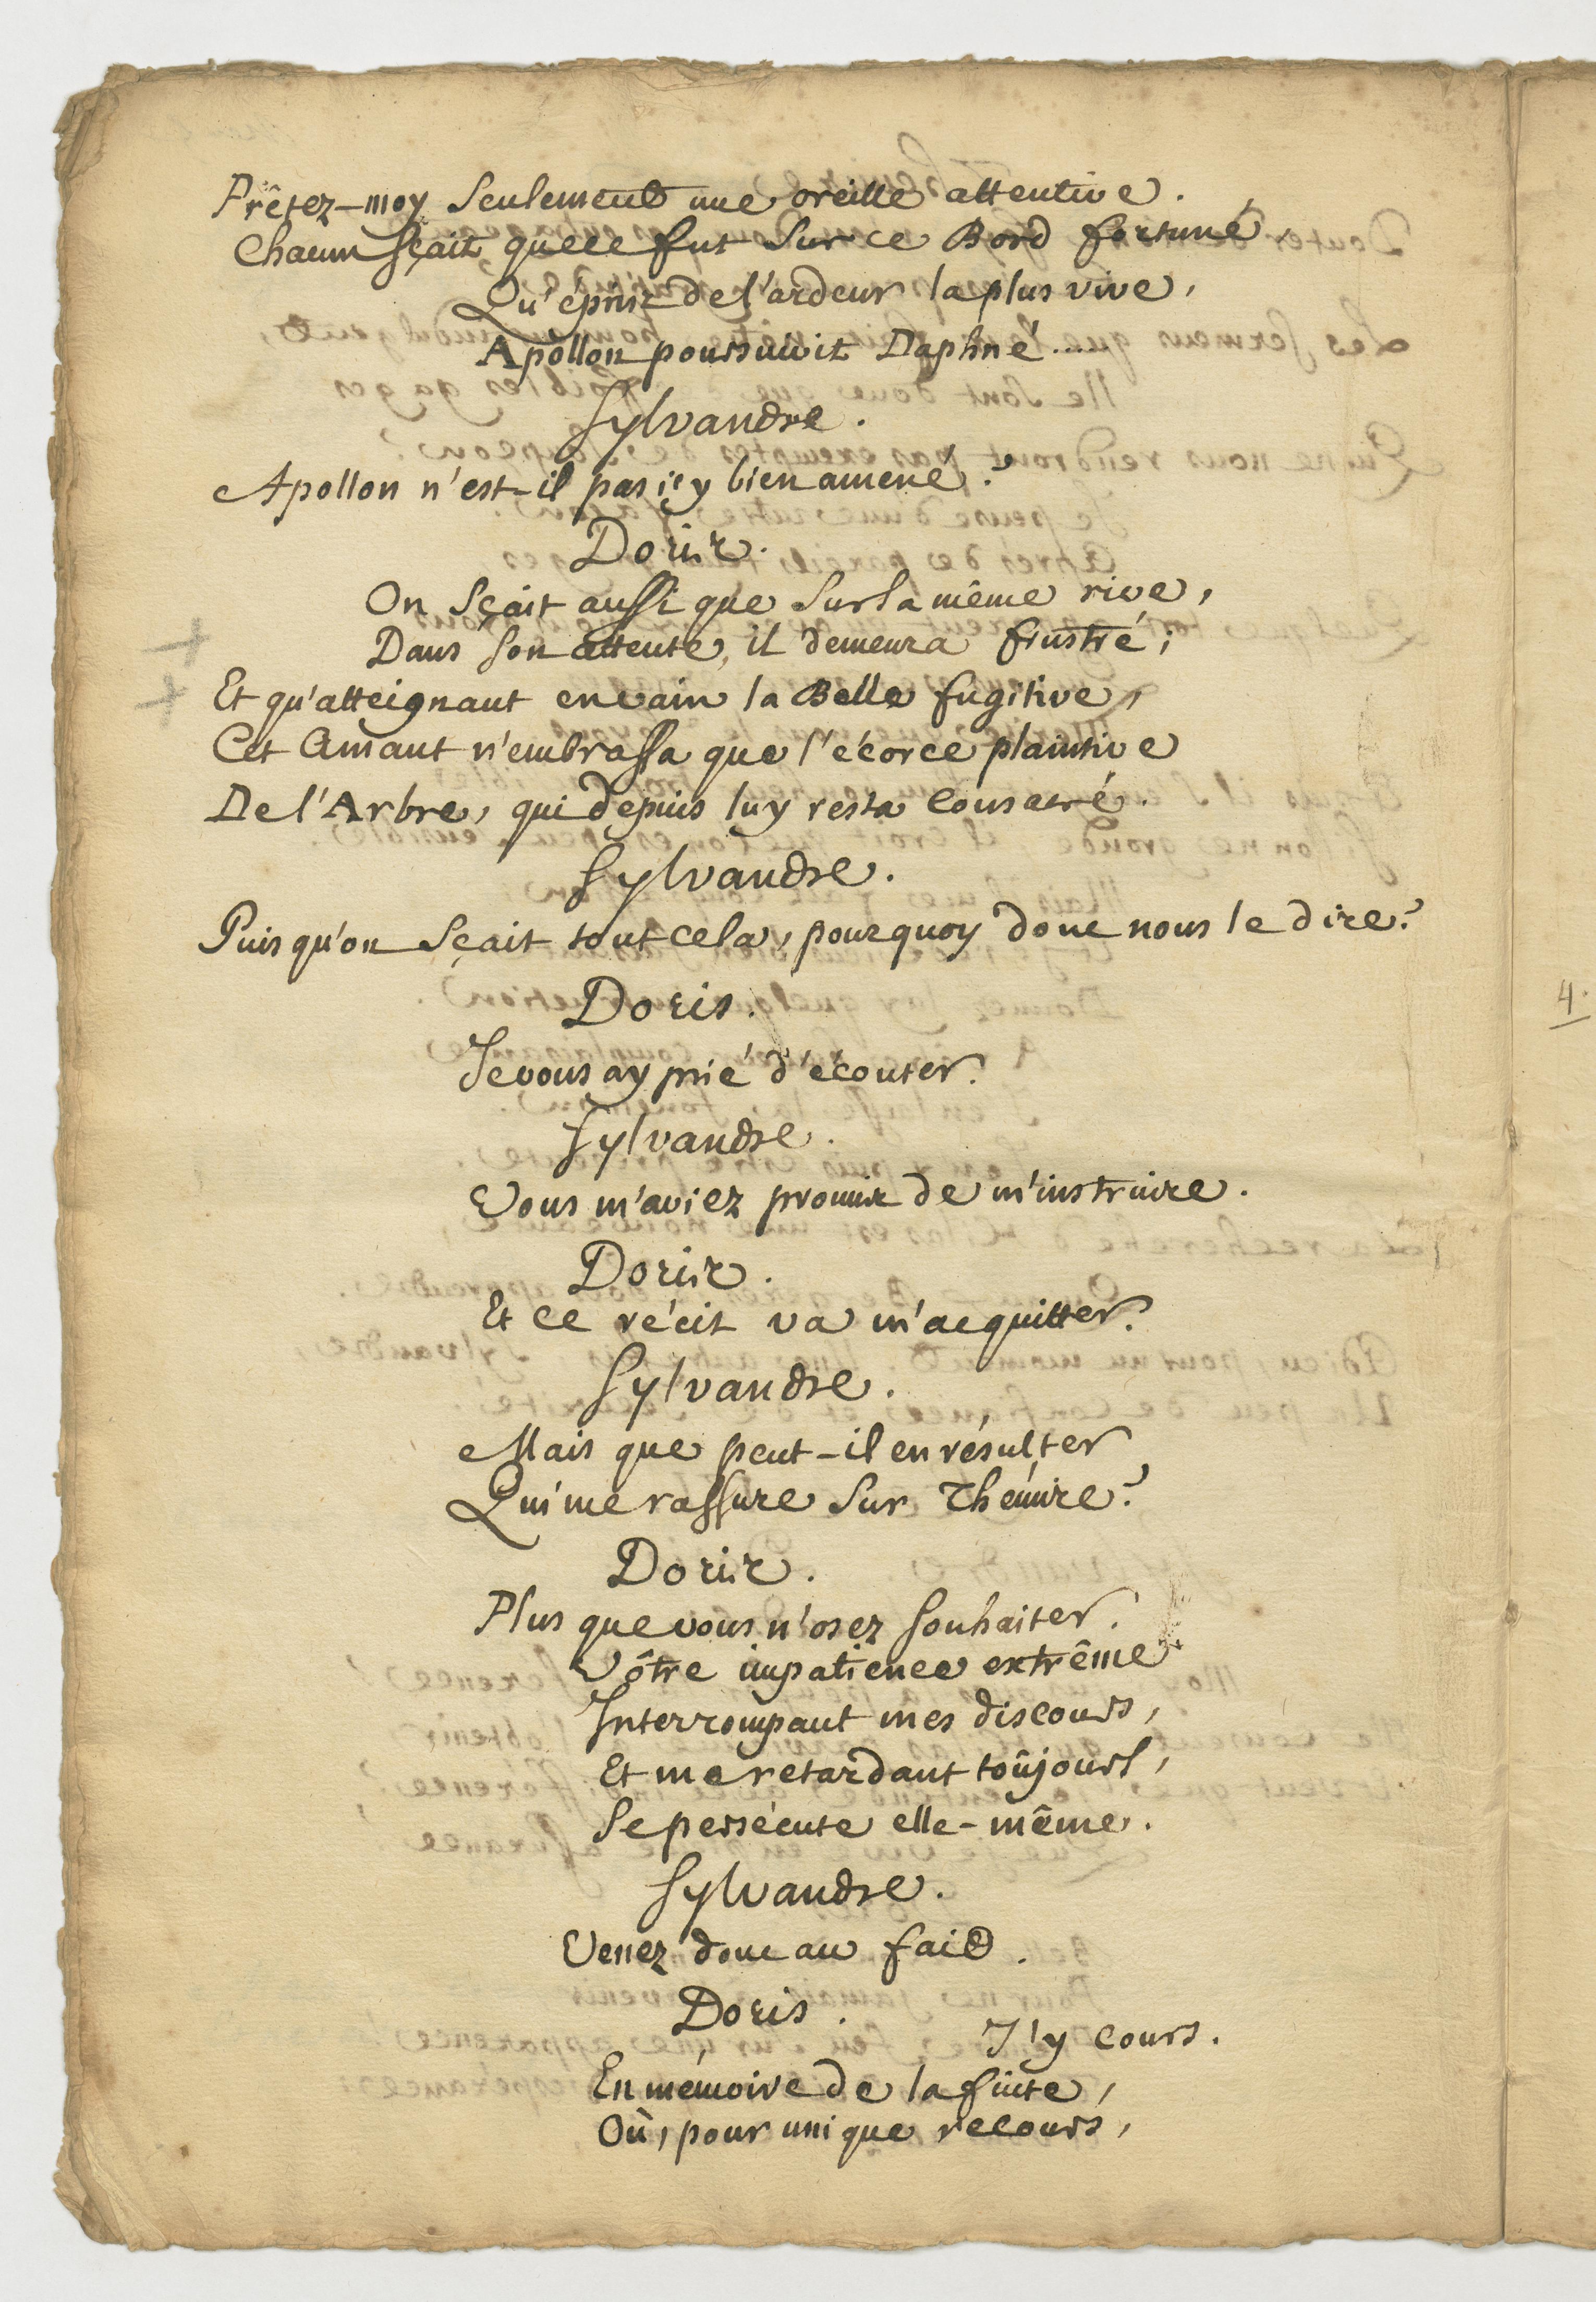 Prêtez-moy Seulement une oreille attentive.
Chacun sçait que ce fut Sur ce Bord fortuné,
Qu'épris de l'ardeur la plus vive,
Apollon poursuivit Daphné....
Sylvandre.
Apollon n'est-il pas icy bien amené?
Doris.
On Sçait aussi que Sur la même rive,
Dans son attente, il demeura frustré;
Et qu'atteignant envain la Belle fugitive,
Cet Amant n'embrassa que l'écorce plaintive
De l'Arbre, qui depuis luy resta consacré.
Sylvandre.
Puisqu'on Sçait tout cela, pourquoy donc nous le dire?
Doris.
Je vous ay prié d'écouter.
Sylvandre.
Vous m'aviez promis de m'instruire.
Doris.
Et ce récit va m'acquitter.
Sylvandre.
Mais que peut-il en résulter
Qui me rassure Sur Thémire?
Doris.
Plus que vous n'osez souhaiter.
Vôtre impatience extrême
Interrompant mes discours,
Et me retardant toûjours,
Se persécute elle-même.
Sylvandre.
Venez donc au fait.
Doris.
J'y cours.
En mémoire de la fuite,
Où, pour unique recours,
4.